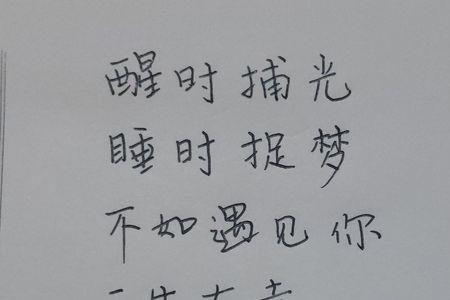 醒时捕光
睡时捉梦
不如遇见你